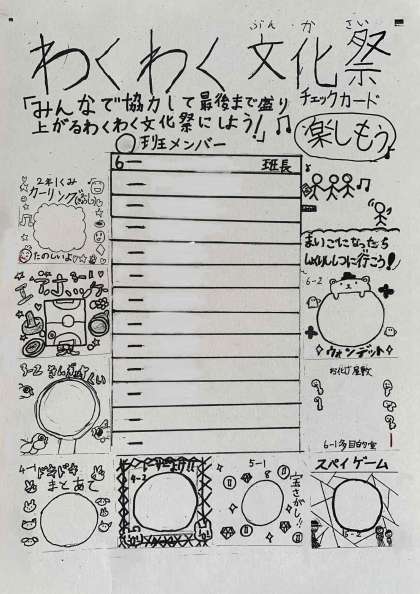 わくわく 文化祭
ぶん か さい
チェックカード
「みんなで協力して最後まで盛り
上がるわくわく文化祭にしよう!」♫
楽しもう♪
〇班メンバー
6ー 班長
2年1くみ
カーリング
たのしいよ
まいごになったら
6-2
ウォンデット
お化け屋敷
6-1多目的室
4-1 ドキドキ
まとあて
4-2
5-1
宝さがし!!
スパイゲーム
5-2